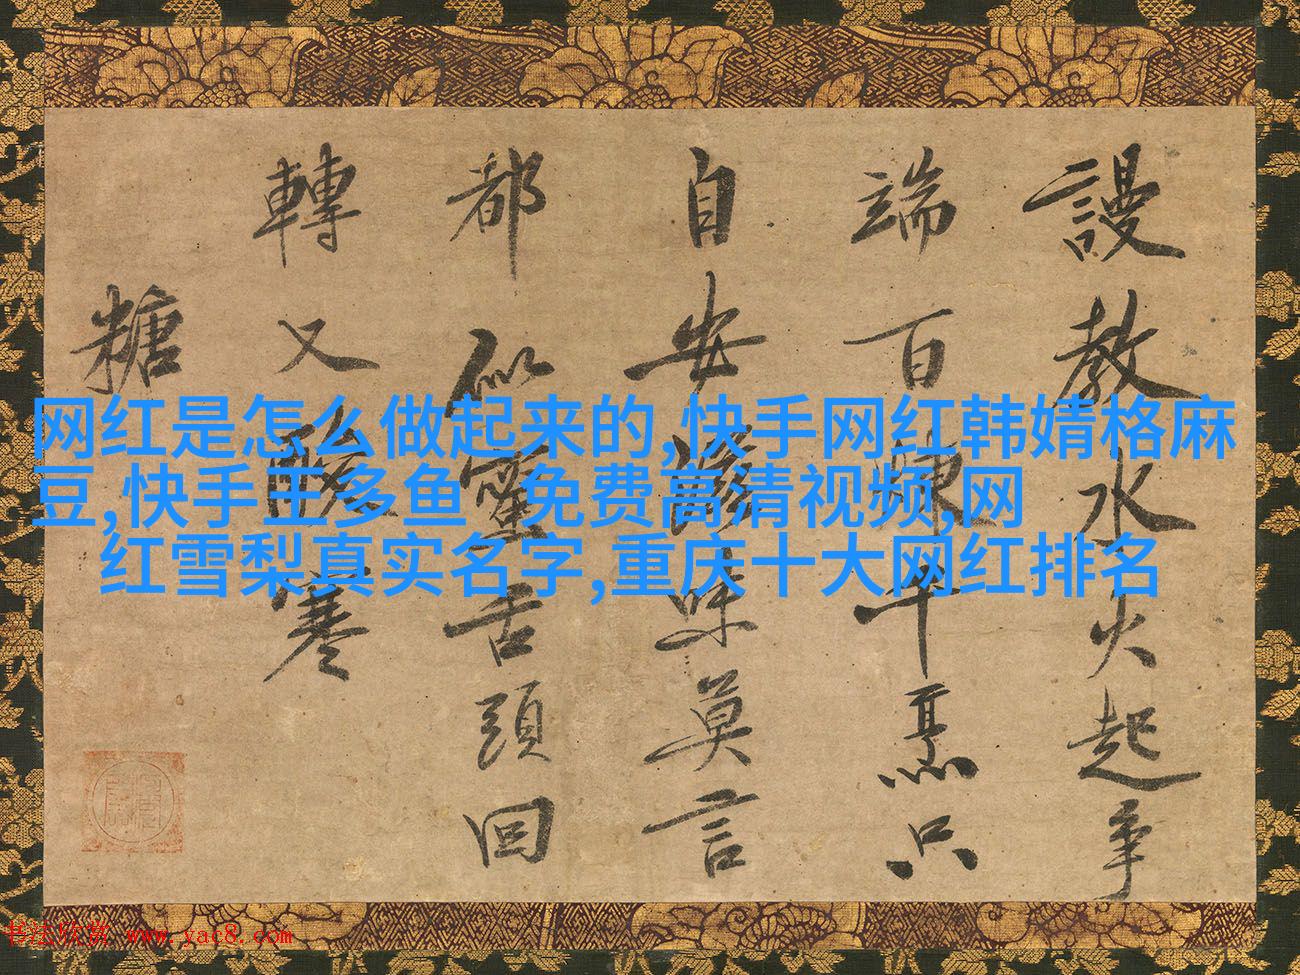 謾教水火起爭
端百煉千熏只
自安滋味莫言
都似蜜舌頭回
轉又酸寒
糖
网红是怎么做起来的,快手网红韩婧格麻
豆,快手王多鱼 免费高清视频,网
红雪梨真实名字,重庆十大网红排名
书法欣赏 www.yac8.com